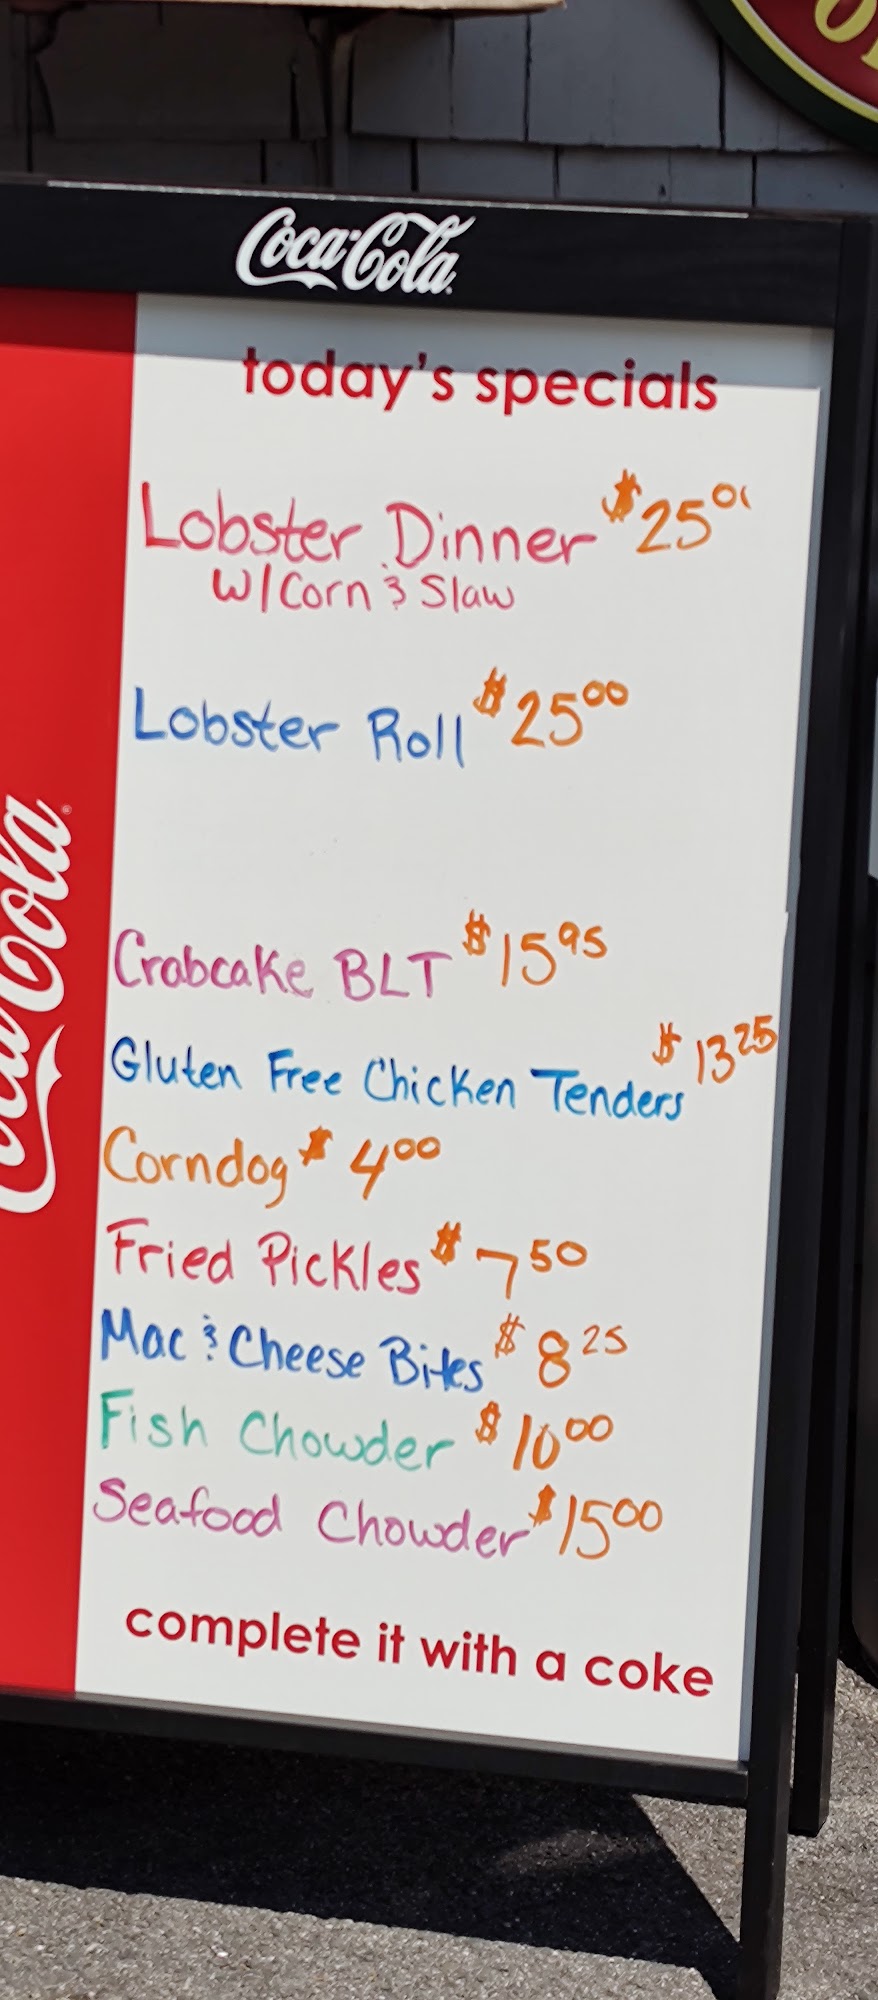 Coca-Cola
today's specials
Lobster Dinner $25
W/Corn & Slaw
Lobster Roll $25 00
Crabcake BLT $15 95
Gluten Free Chicken Tenders $13 25
Corndog $4 00
Fried Pickles $7 50
Mac & Cheese Bites $8 25
Fish Chowder $10 00
Seafood Chowder $15 00
complete it with a coke
Coca-Cola